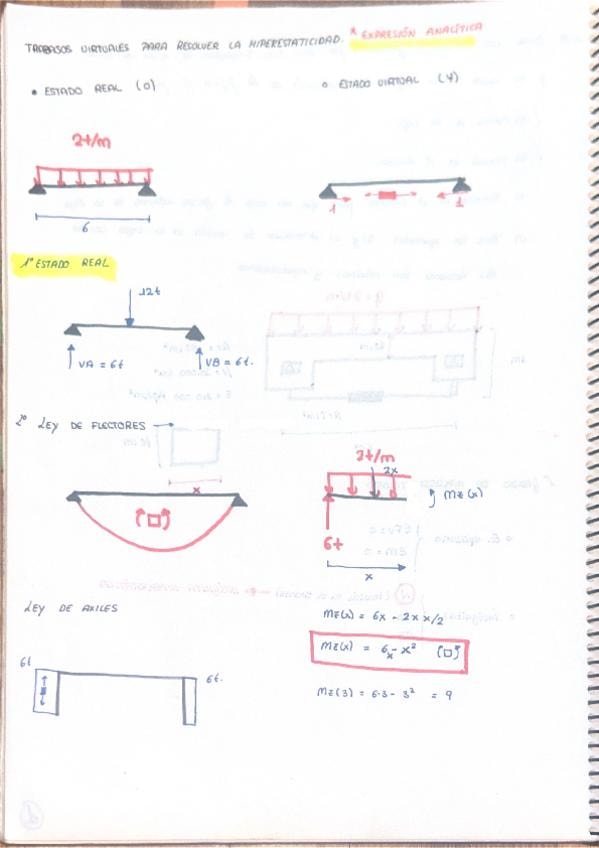 TRABAJOS VIRTUALES PARA RESOLVER LA HIPERESTATICIDAD. * EXPRESIÓN ANALÍTICA
• ESTADO REAL (0)
○ ESTADO VIRTUAL (Ψ)
2t/m
6
1 1
1º ESTADO REAL
12t
VA = 6t
VB = 6t.
2º LEY DE FLECTORES →
x
2t/m
2x
Mz(x)
6t
x
LEY DE AXILES
Mz(x) = 6x - 2x x/2
Mz(x) = 6x - x²
Mz(3) = 6·3 - 3² = 9
6t
6t.